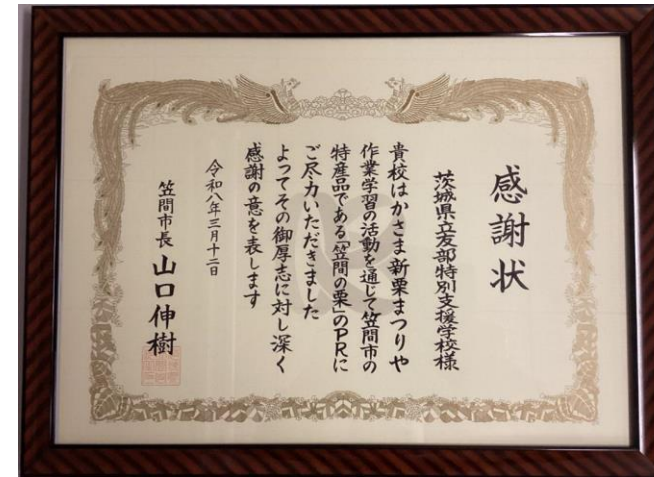 感謝状
茨城県立友部特別支援学校様
貴校はかさま新栗まつりや
作業学習の活動を通じて笠間市の
特産品である「笠間の栗」のPRに
ご尽力いただきました
よってその御厚志に対し深く
感謝の意を表します
令和八年三月十二日
笠間市長 山口伸樹